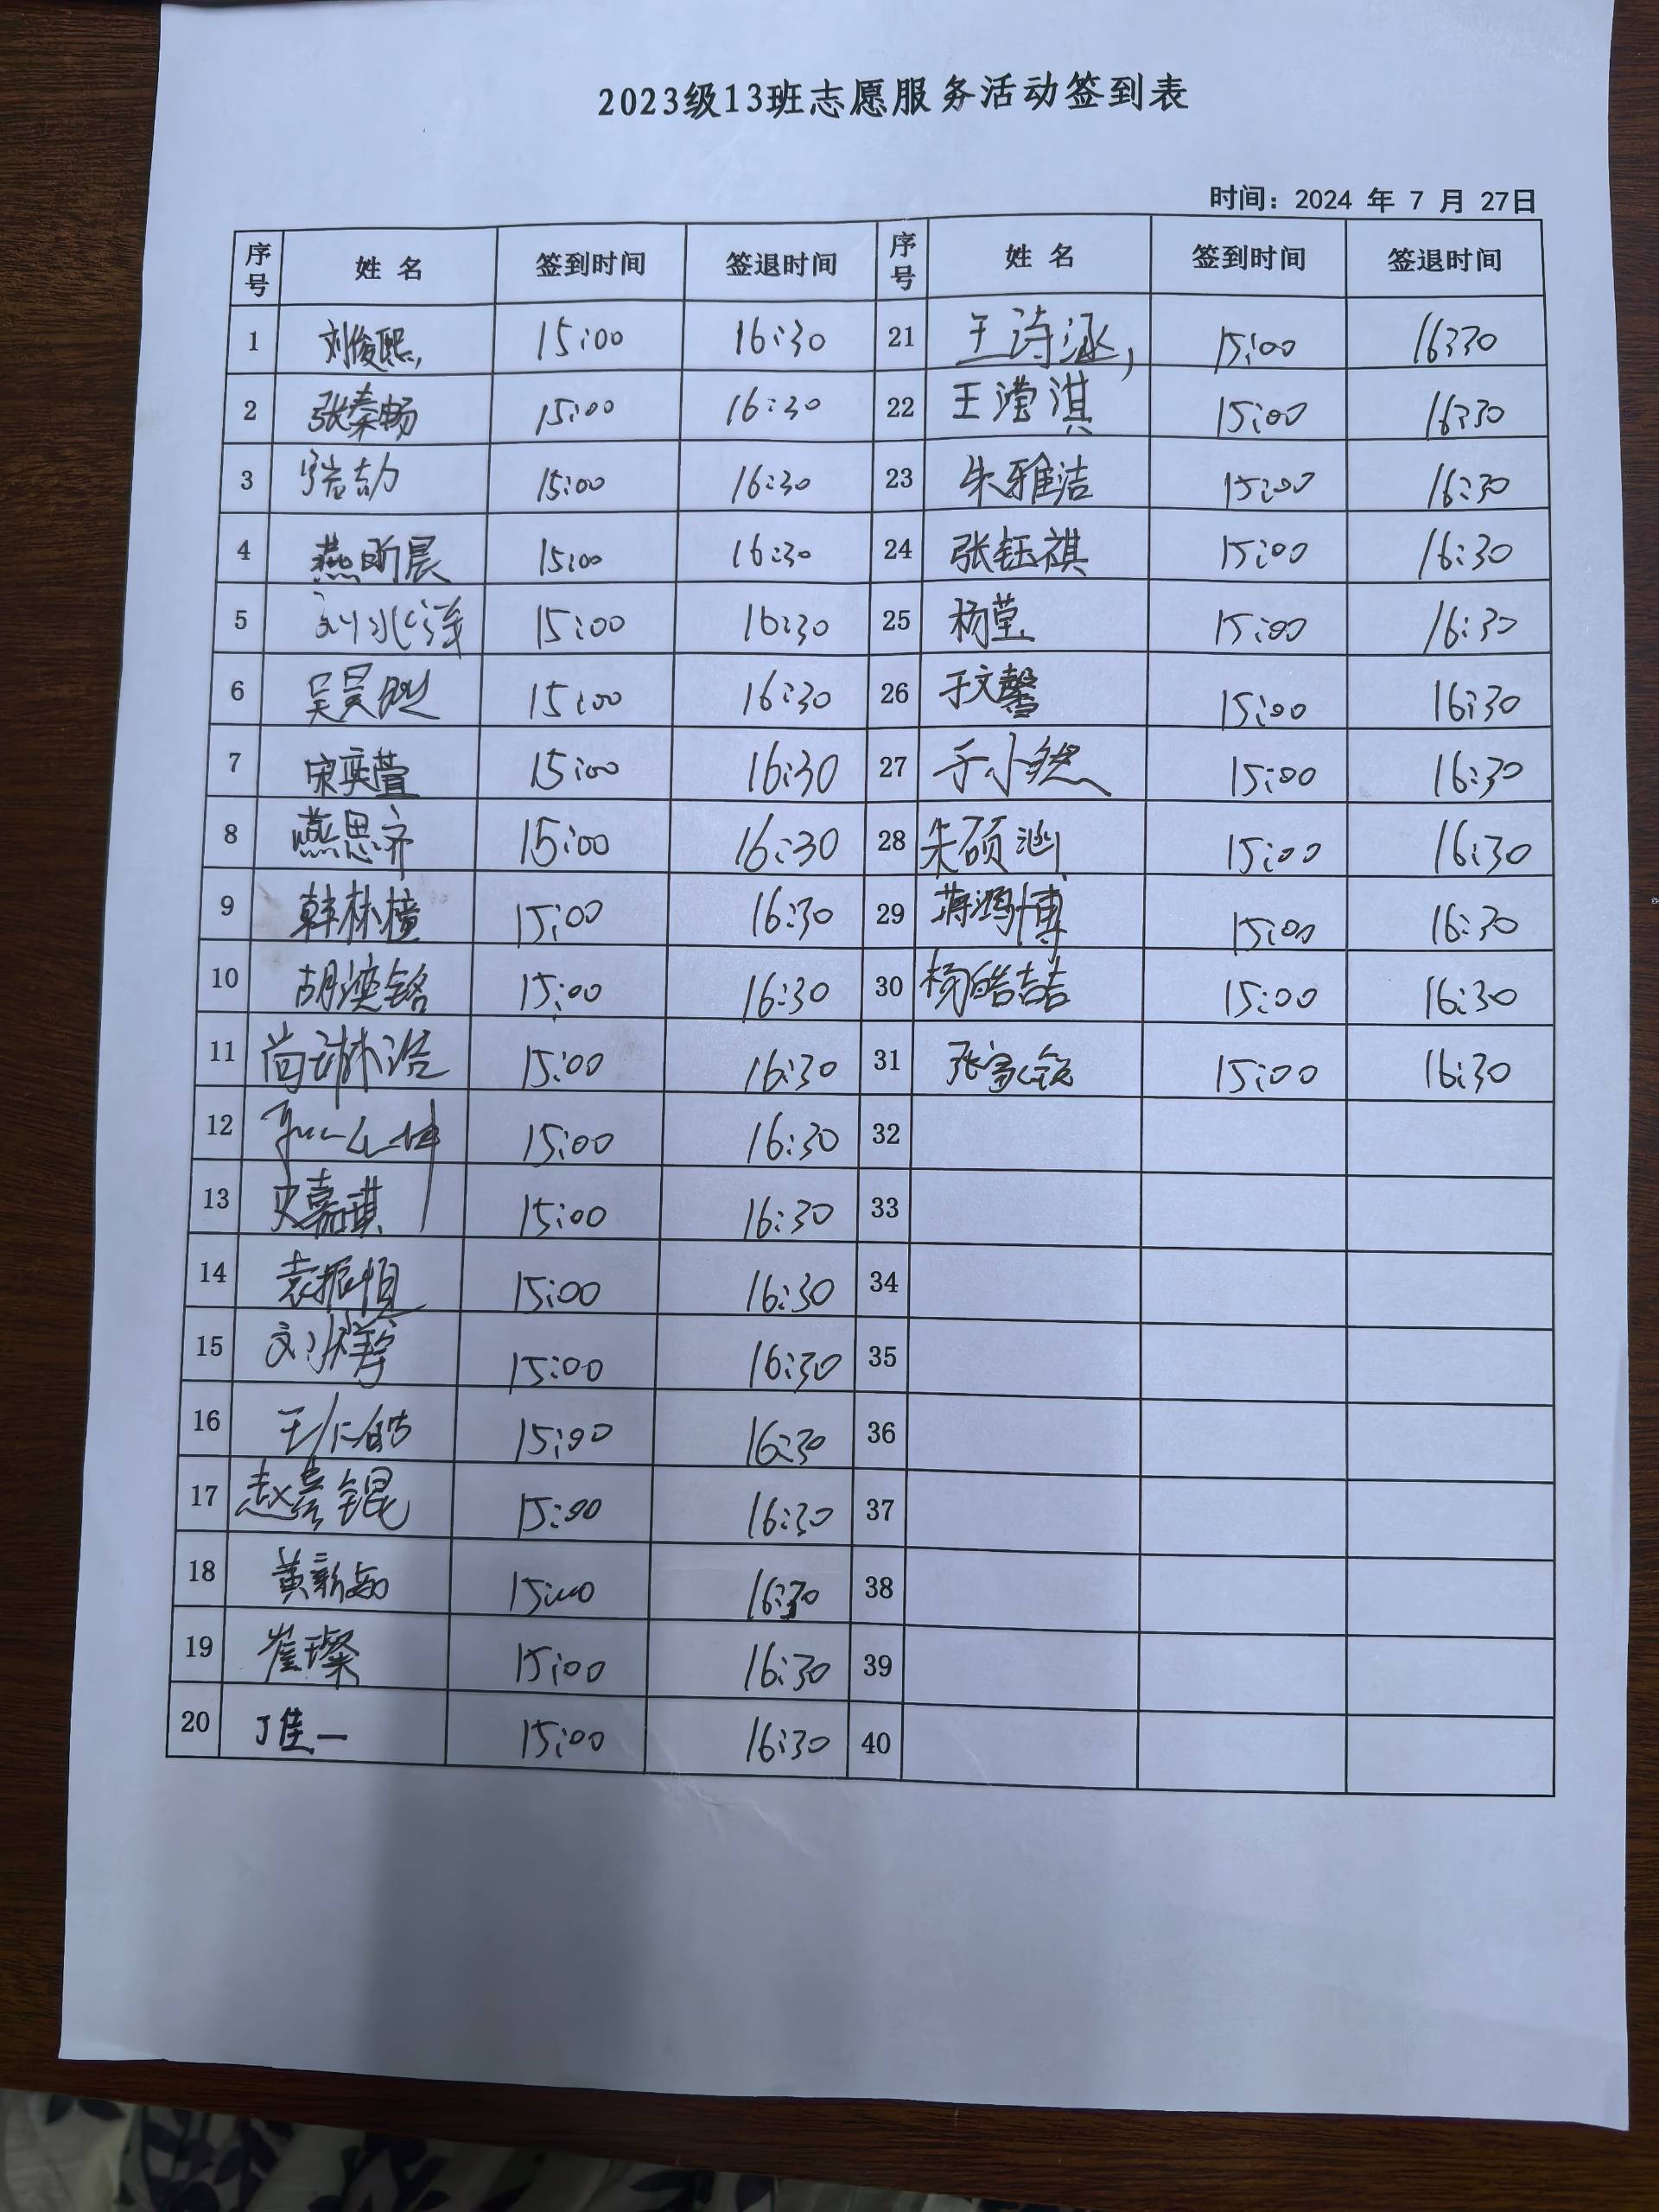 2023级13班志愿服务活动签到表
时间：2024 年 7 月 27日
序号 姓 名 签到时间 签退时间 序号 姓 名 签到时间 签退时间
1 刘俊熙 15:00 16:30 21 王诗涵 15:00 16:30
2 张秦畅 15:00 16:30 22 王滢淇 15:00 16:30
3 15:00 16:30 23 朱雅洁 15:00 16:30
4 燕昕晨 15:00 16:30 24 张钰祺 15:00 16:30
5 15:00 16:30 25 杨莹 15:00 16:30
6 15:00 16:30 26 于文馨 15:00 16:30
7 宋奕萱 15:00 16:30 27 于小然 15:00 16:30
8 燕思齐 15:00 16:30 28 朱硕涵 15:00 16:30
9 韩林橦 15:00 16:30 29 蒋鸿博 15:00 16:30
10 胡滦铭 15:00 16:30 30 杨皓喆 15:00 16:30
11 尚琳浩 15:00 16:30 31 15:00 16:30
12 15:00 16:30 32
13 史嘉琪 15:00 16:30 33
14 袁振恒 15:00 16:30 34
15 15:00 16:30 35
16 王仁皓 15:00 16:30 36
17 15:00 16:30 37
18 黄新茹 15:00 16:30 38
19 崔璨 15:00 16:30 39
20 丁佳一 15:00 16:30 40